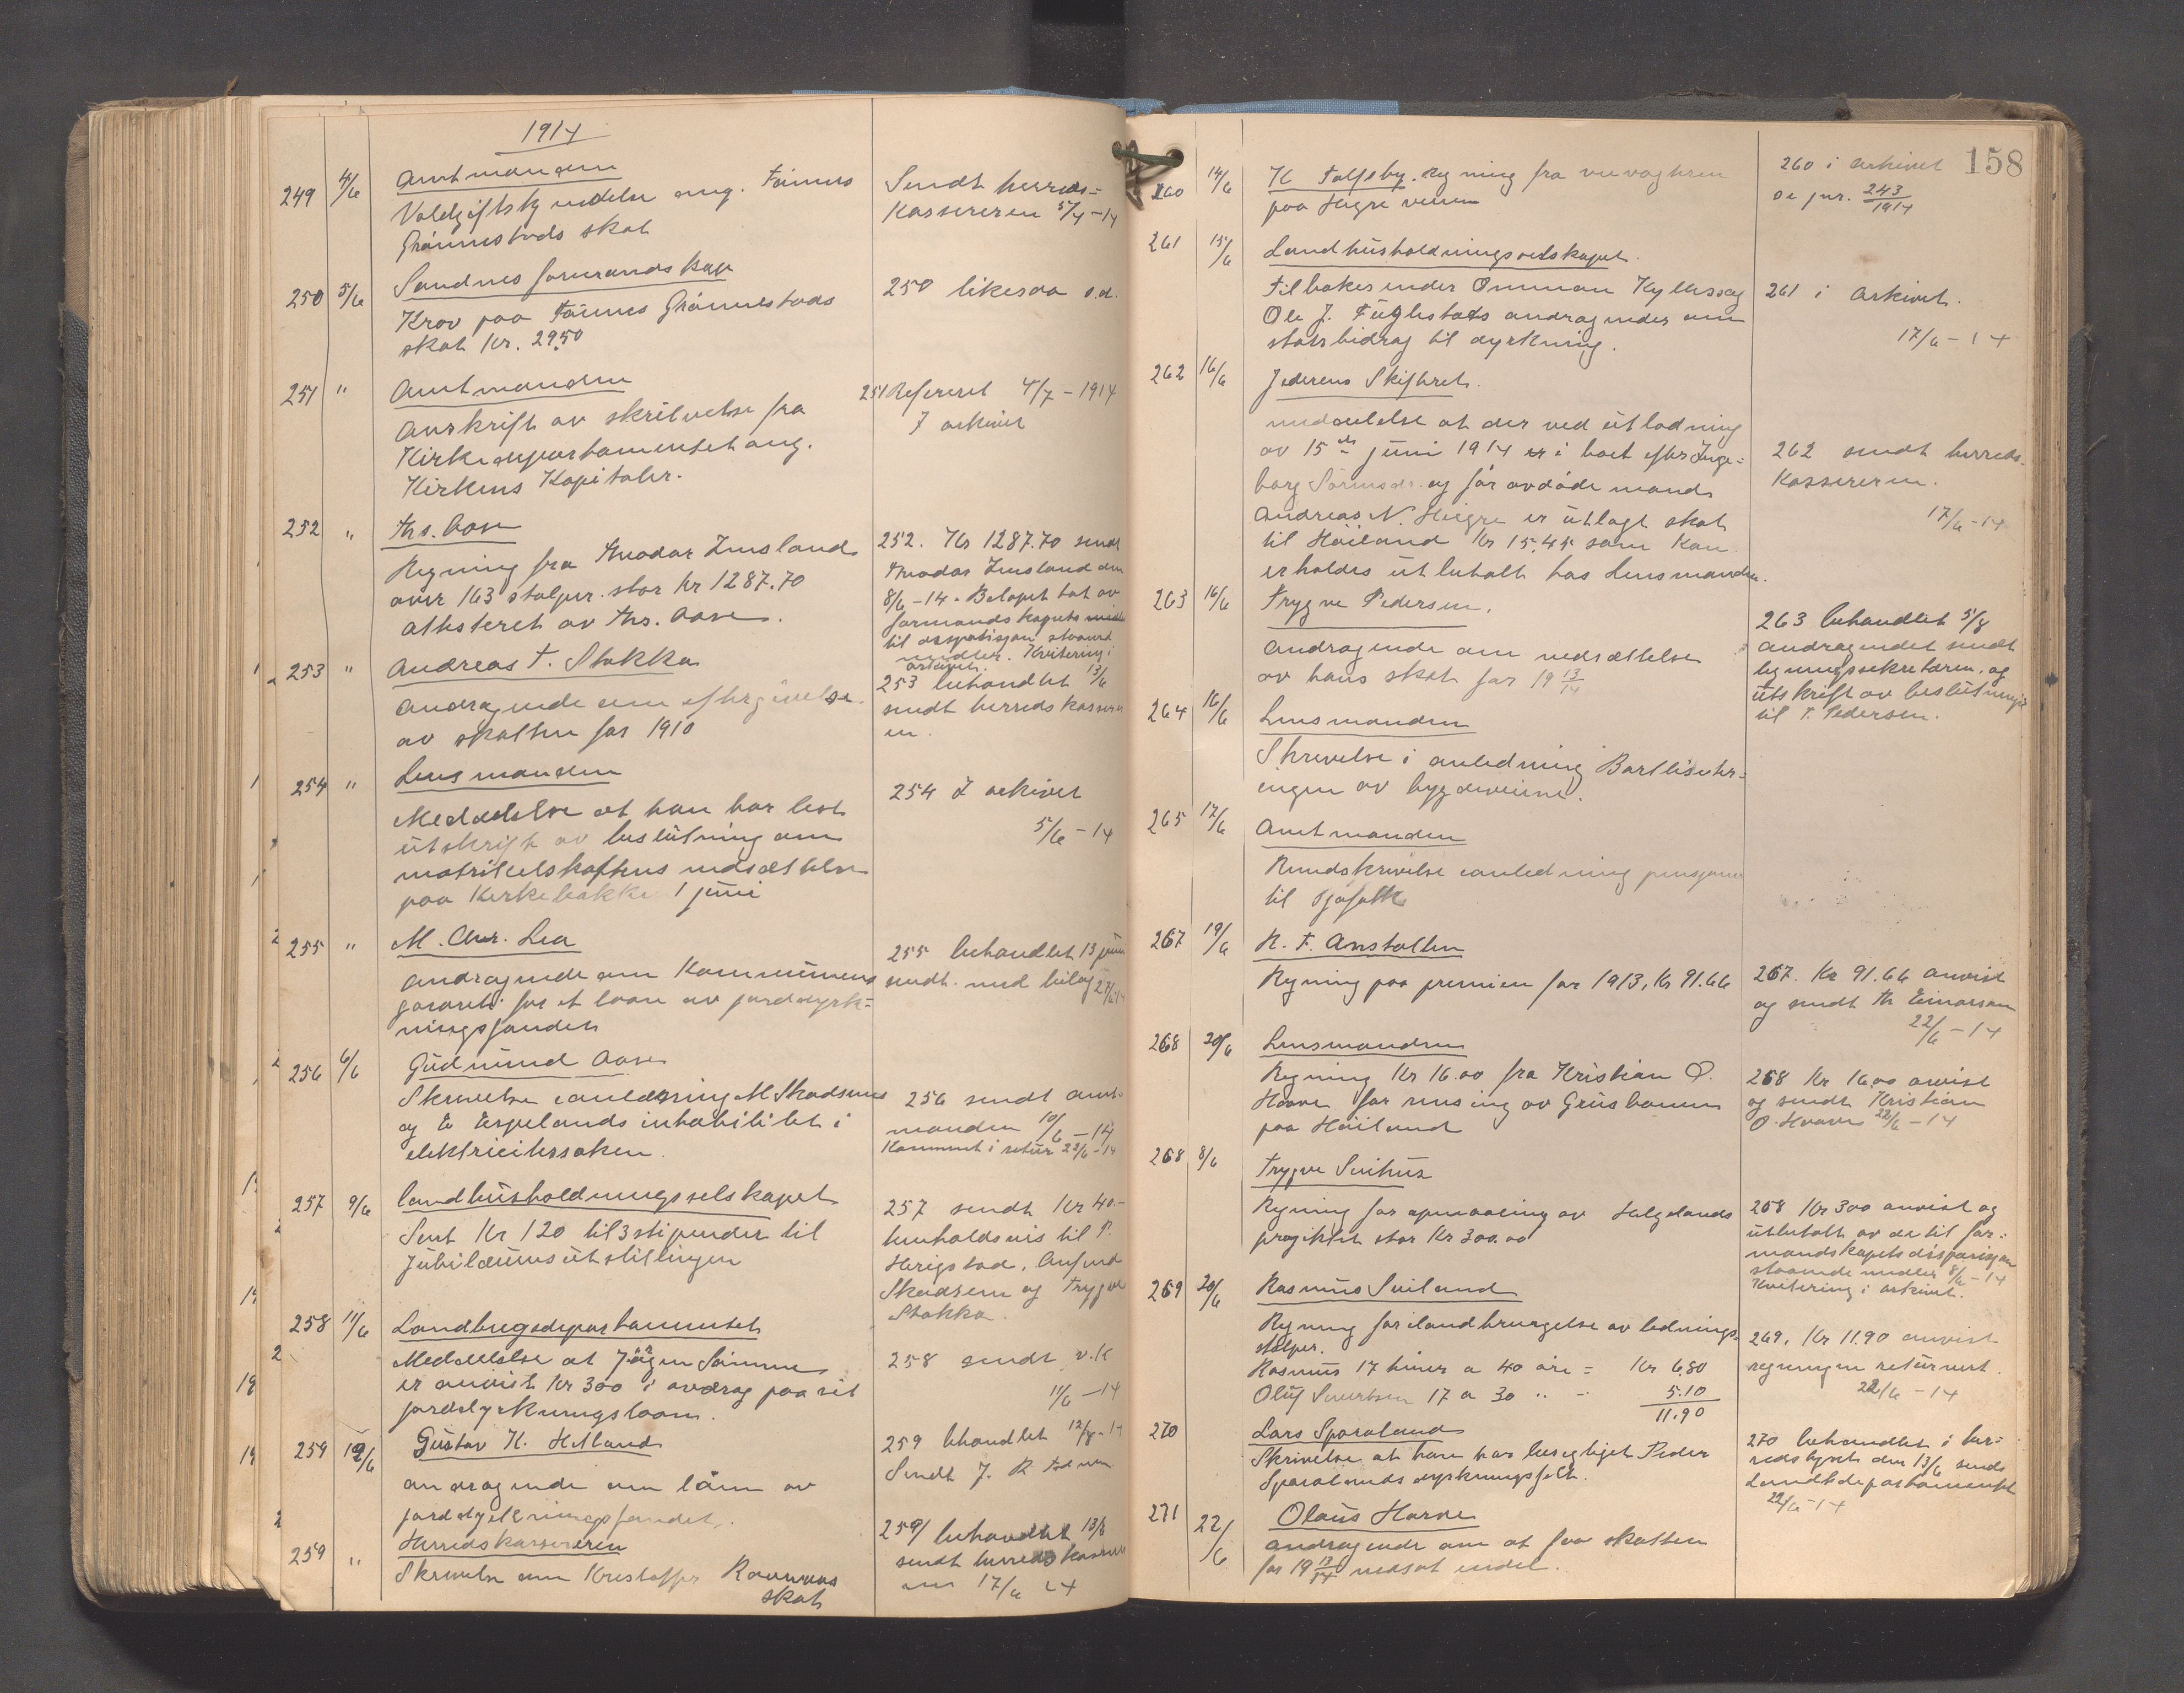 1914
249 4/6 Amtmanden
Voldgiftskjendelse ang. Tønnes
Grønnestads skat
Sendt herreds-
kassereren 5/7-14
250 5/6 Sandnes formandskap
Krav paa Tønnes Grønnestads
skat kr. 29.50
250 likesaa s.d.
251 " Amtmanden
Avskrift av skrivelse fra
Kirkedepartementet ang.
Kirkens Kapitaler.
251 Refereret 4/7-1914
I arkivet
252 " Ths. Aase
Regning fra Theodor Imsland
over 163 stolper stor kr 1287.70
attesteret av Ths. Aase.
252. Kr 1287.70 sendt
Theodor Imsland den
8/6-14. Beløpet tat av
formandskapets midler
til disposisjon staaende
midler. Kvitering i
arkivet.
253 " Andreas T. Stokka
Andragende om eftergivelse
av skatten for 1910
253 behandlet 13/6
sendt herredskasserer
en.
254 " Lensmanden
Meddelelse at han har lest
utskrift av beslutning om
matrikelskattens nedsættelse
paa Kirkebakke 1 juni
254 I arkivet
5/6-14
255 " M. Chr. Lea
andragende om Kommunens
garanti for et laan av jorddyrk-
ningsfondet
255 behandlet 13 juni
sendt med bilag 27/6 14
256 6/6 Gudmund Aase
Skrivelse i anledning M Skadsems
og E Espelands inhabilitet i
elektricitetssaken.
256 sendt amt-
manden 10/6-14
Kommet i retur 23/6-14
257 9/6 Landhusholdningsselskapet
Sent Kr 120 til 3 stipender til
Jubilæumsutstillingen
257 sendt Kr 40.-
henholdsvis til P.
Herigstad, Anfind
Skadsem og Trygve
Stokka.
258 11/6 Landbrugsdepartementet
Meddelelse at Jørgen Sømme
er anvist kr 300 i avdrag paa sit
jorddyrkningslaan.
258 sendt v.k
11/6-14
259 12/6 Gustav K. Helland
andragende om lån av
jorddyrkningsfondet.
259 behandlet 12/8-14
Sendt J. R
259 " Herredskassereren
Skrivelse om Kristoffer Rovunas
skat
259/ behandlet 13/6
sendt herredskasserer
en 17/6 14
158
260 14/6 K Folgsby. Regning fra veivogteren
paa Høgre veien
260 i arkivet
se jnr. 243/1914
261 15/6 Landhusholdningsselskapet.
Tilbakesender Ommun Kyllesog
Ole J. Fuglestads andragender om
statsbidrag til dyrkning.
261 i arkivet.
17/6-14
262 16/6 Jæderens Skifteret.
meddelelse at der ved utlodning
av 15de juni 1914 er i boet efter Inge-
borg Sørensdr. og før avdøde mand
Andreas N. Høigre er utlagt skat
til Høiland Kr 15.45 som kan
erholdes utbetalt hos Lensmanden.
262 sendt herreds-
kassereren.
17/6-14
263 16/6 Trygve Pedersen.
Andragende om nedsættelse
av hans skat for 19 13/14
263 behandlet 5/8
Andragendet sendt
ligningssekretæren, og
utskrift av beslutningen
til T. Pedersen.
264 16/6 Lensmanden
Skrivelse i anledning Bortliciter-
ingen av bygdeveiene.
265 17/6 Amtmanden
Rundskrivelse i anledning pensjoner
til sjøfolk
267 19/6 R. F. Anstalten
Regning paa premien for 1913, Kr 91.66
267. Kr 91.66 anvist
og sendt Th Einarsen
22/6-14
268 20/6 Lensmanden
Regning Kr 16.00 fra Kristian O.
Hovve for rensing av Grusbanen
paa Høiland
268 Kr 16.00 anvist
og sendt Kristian
O. Hovve 22/6-14
268 8/6 Trygve Svihus
Regning for opmaaling av Helgelands
projektet stor Kr 300.00
268 Kr 300 anvist og
utbetalt av de til for-
mandskapets disposisjon
staaende midler 8/6-14
Kvitering i arkivet.
269 20/6 Rasmus Sviland
Regning for ilandbringelse av lednings-
stolper.
Rasmus 17 timer a 40 øre = Kr 6.80
Oluf Sivertsen 17 a 30 " - 5.10
11.90
269. Kr 11.90 anvist
regningen returnert.
22/6-14
270 Lars Sporaland
Skrivelse at han har besigtiget Peder
Sporalands dyrkningsfelt.
270 behandlet i her-
redstyret den 13/6 sendt
Landbdepartementet
22/6-14
271 22/6 Olaus Harve
andragende om at faa skatten
for 19 13/14 nedsat endel.